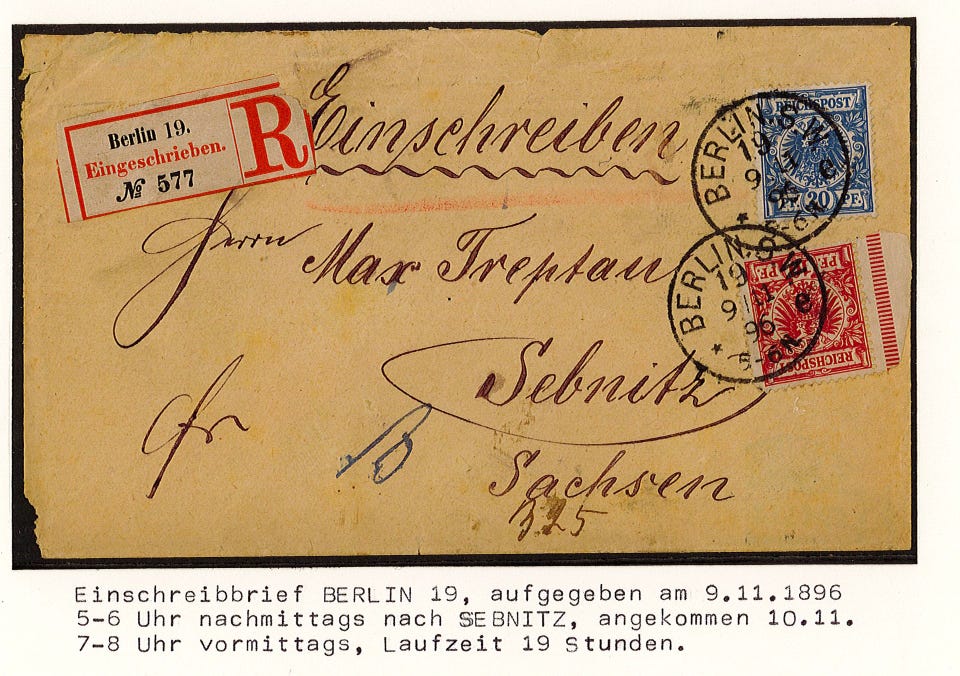 Berlin 19.
Eingeschrieben.
№ 577
R
Einschreiben
REICHSPOST
PF. 20 PF.
BERLIN. S.W.
19
e
Herrn
Max Treptau
BERLIN. S.W.
19
9 11
96
e
5-6N
REICHSPOST
Sebnitz
fr
Sachsen
325
Einschreibbrief BERLIN 19, aufgegeben am 9.11.1896
5-6 Uhr nachmittags nach SEBNITZ, angekommen 10.11.
7-8 Uhr vormittags, Laufzeit 19 Stunden.